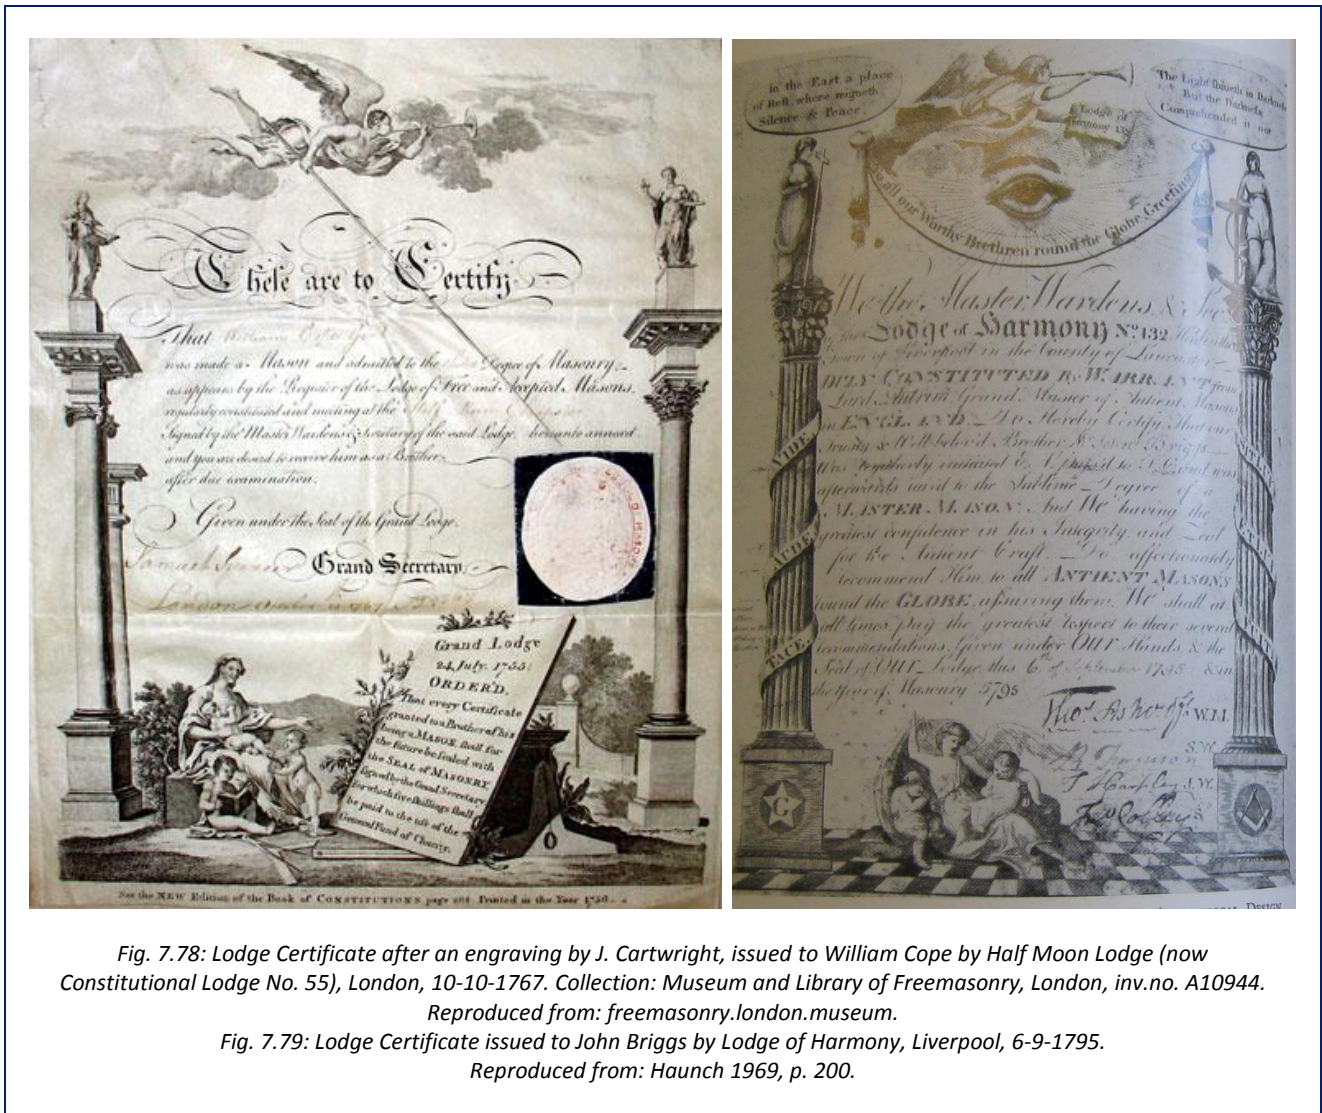 These are to Certify
That William
was made a Mason and admitted to the Degree of Masonry
as appears by the Register of the Lodge of Free and Accepted Masons,
regularly constituted and meeting at the Half Moon
Signed by the Master Wardens & Secretary of the said Lodge, hereunto annexed
and you are desired to receive him as a Brother
after due examination.
Given under the Seal of the Grand Lodge.
Grand Secretary
London
Grand Lodge
24, July. 1755:
ORDER'D,
That every Certificate
granted to a Brother of his
being a MASON, shall for
the future be sealed with
the SEAL of MASONRY,
signed by the Grand Secretary,
for which five shillings shall
be paid to the use of the
General Fund of Charity.
See the NEW Edition of the Book of CONSTITUTIONS page Printed in the Year 1756
in the East a place
of Rest, where reigneth
Silence & Peace.
The Light shineth in Darkness
But the Darkness
Comprehended it not
Lodge of
Harmony
To all our Worthy Brethren round the Globe Greeting
We the Master, Wardens &
Lodge of Harmony No. 132
Town of Liverpool in the County of Lancaster
DULY CONSTITUTED By WARRANT from
Lord Antrim Grand Master of Antient Masons
in ENGLAND Do Hereby Certify That our
Trusty & Well beloved Brother Briggs
Was regularly initiated and was
afterwards rais'd to the Sublime Degree of a
MASTER MASON And We having the
greatest confidence in his Integrity and Zeal
for the Antient Craft Do affectionately
recommend Him to all ANTIENT MASONS
round the GLOBE assuring them We shall at
all times pay the greatest respect to their several
recommendations. Given under OUR Hands & the
Seal of OUR Lodge this 6th of September 1795 & in
the Year of Masonry 5795
VIDE
AUDE
TACE
W.M.
S.W.
J.W.
G
DESIGN
Fig. 7.78: Lodge Certificate after an engraving by J. Cartwright, issued to William Cope by Half Moon Lodge (now
Constitutional Lodge No. 55), London, 10-10-1767. Collection: Museum and Library of Freemasonry, London, inv.no. A10944.
Reproduced from: freemasonry.london.museum.
Fig. 7.79: Lodge Certificate issued to John Briggs by Lodge of Harmony, Liverpool, 6-9-1795.
Reproduced from: Haunch 1969, p. 200.